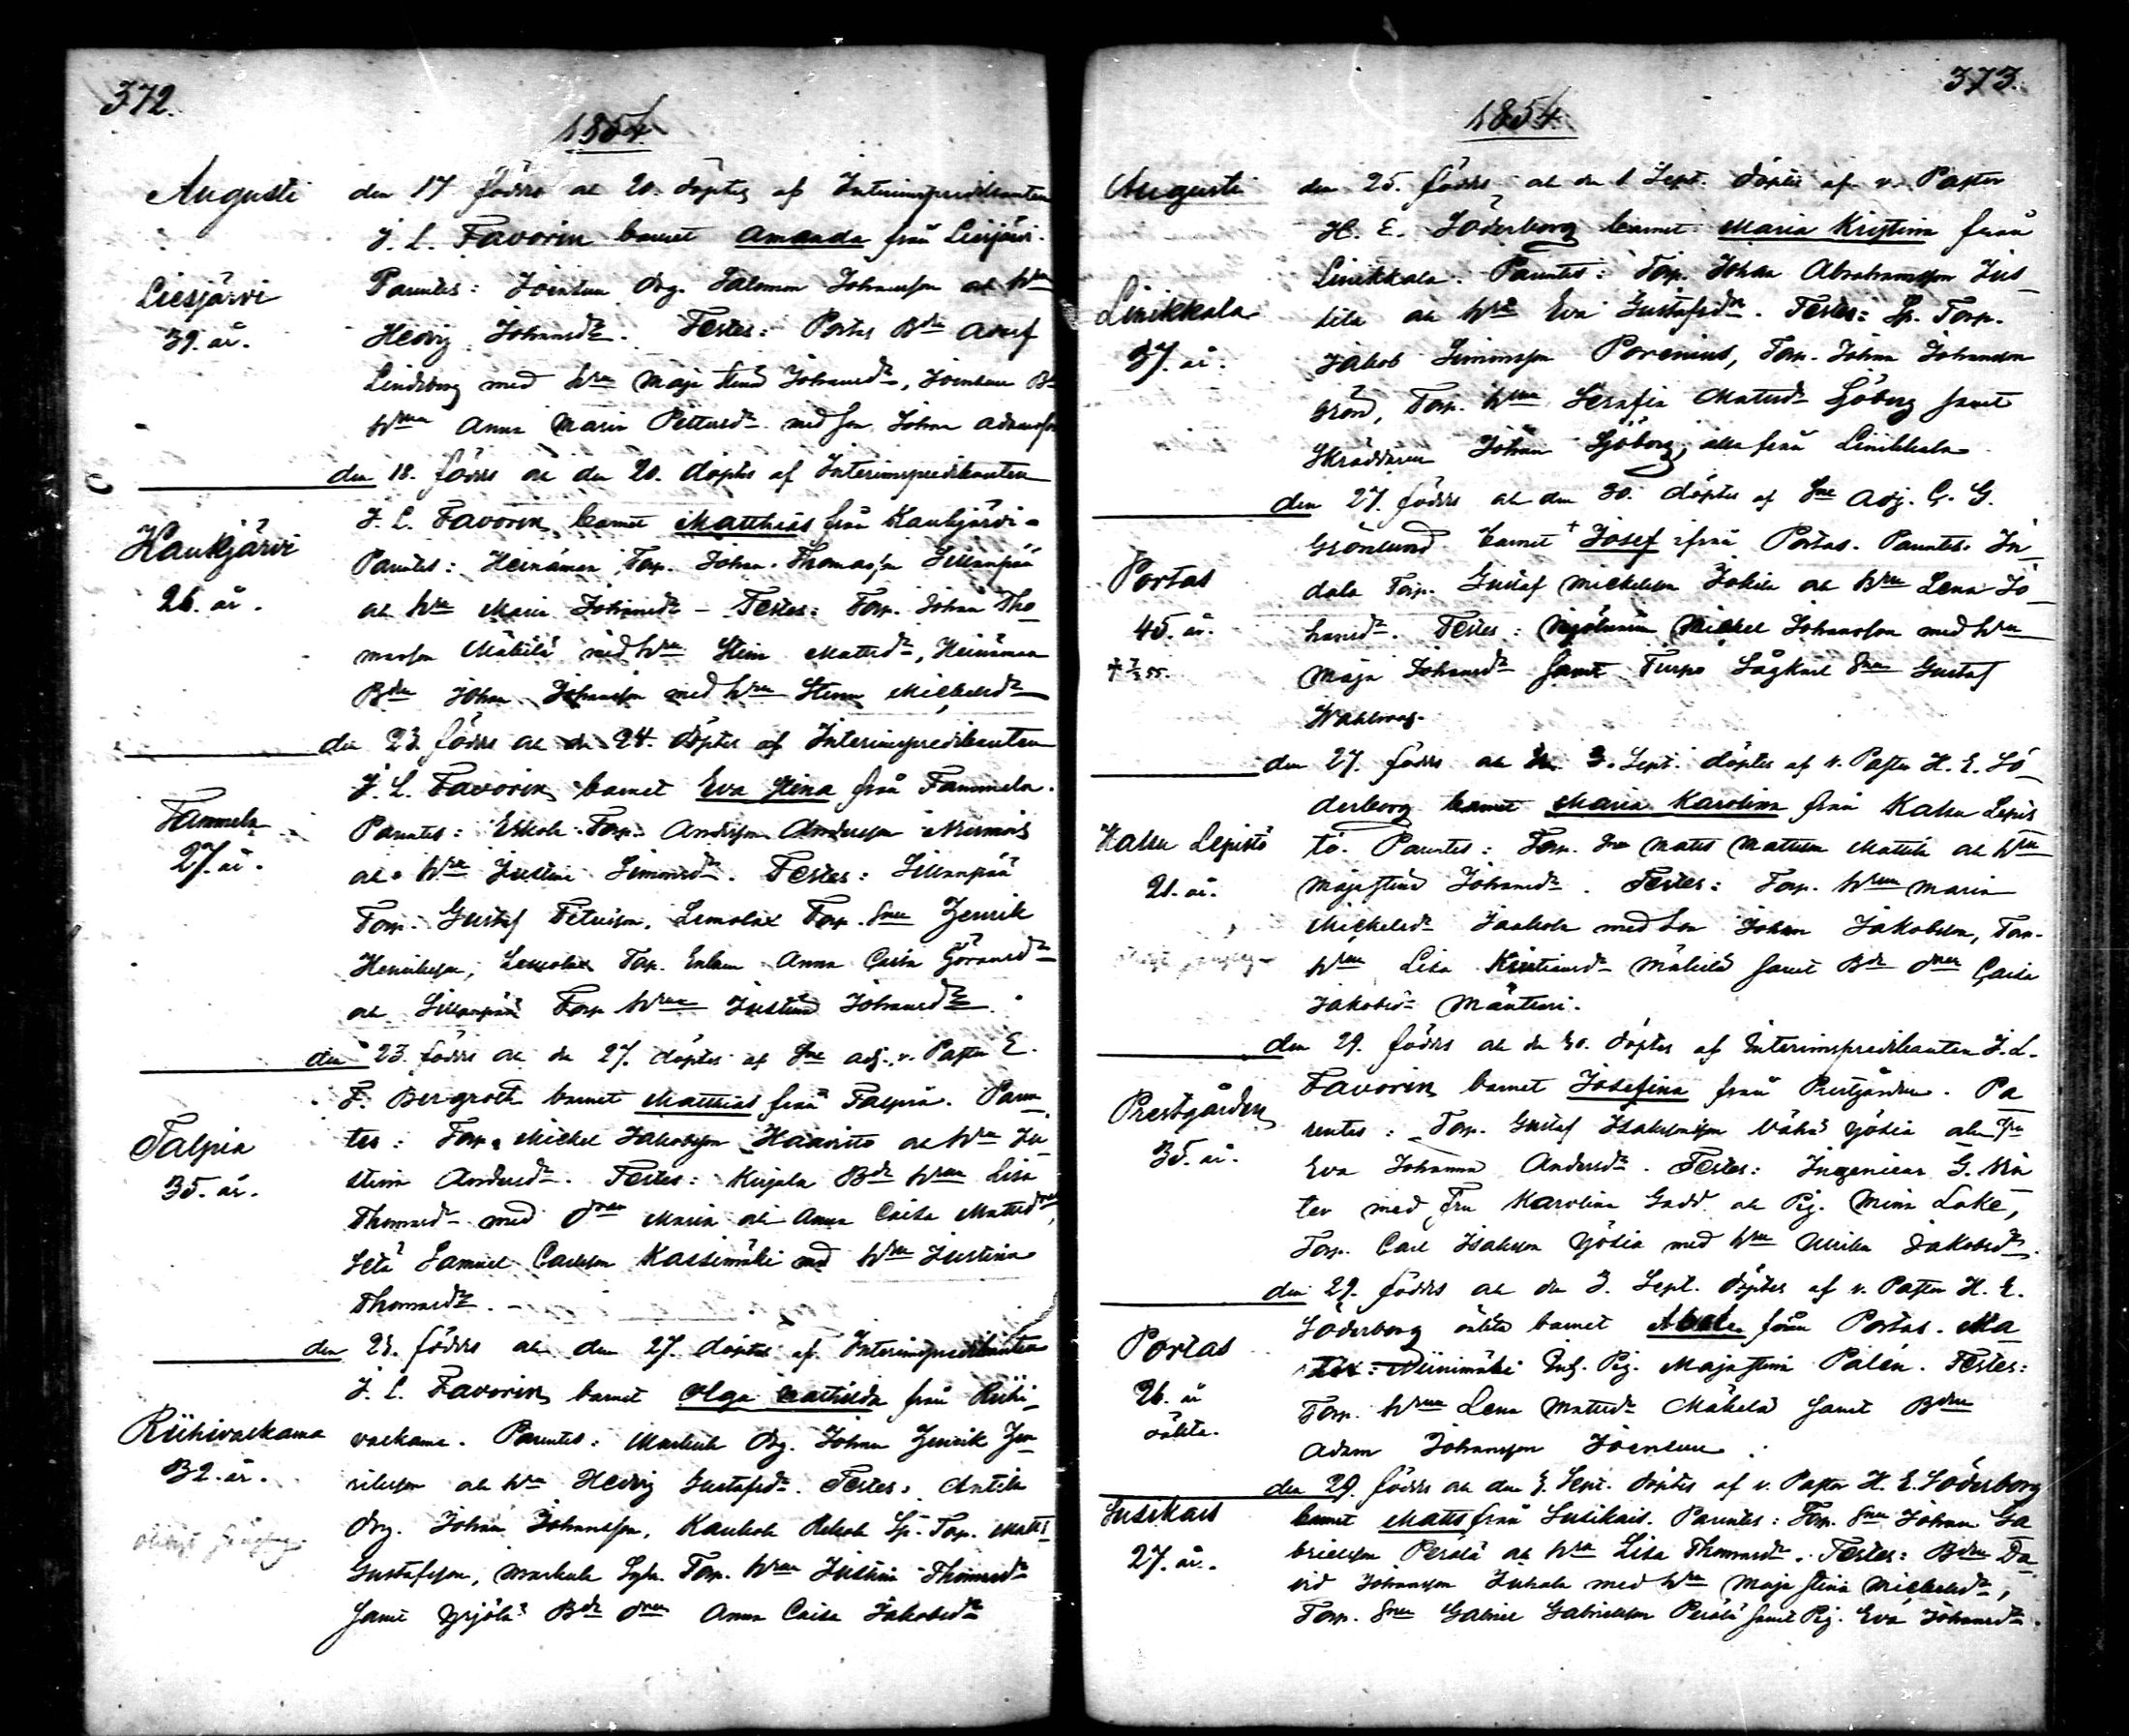 372.
1854.
Augusti den 17. föddes och 20. döptes af Interimspredikanten
J. L. Favorin barnet Amanda från Liesjärvi.
Liesjärvi
39. år.
Parentes: Joentaa drg. Salomon Johansson och hru
Hedvig Johansdr. Testes: Portas Bdn Adolf
Lindeberg med hru Maja Stina Johansdr, Joentaa Bd
hrun Anna Maria Pettersdr med son Johan Adamsson
den 18. föddes och den 20. döptes af Interimspredikanten
Kaukjärvi
26. år.
J. L. Favorin barnet Matthias från Kaukjärvi.
Parentes: Heinämaa Torp. Johan Thomasson Sillanpää
och hru Maria Johansdr. Testes: Torp. Johan Tho
masson Mäkilä med hru Stina Mattsdr, Heinämaa
Bdn Johan Johansson med hrun Stina Michelsdr
den 23. föddes och den 24. döptes af Interimspredikanten
Tammela
27. år.
J. L. Favorin barnet Eva Stina från Tammela.
Parentes: Eskola Torp. Andersson
och hru Justina Simonsdr. Testes: Sillanpää
Torp. Gustaf Petersson, Lemolax Torp. Snen Henrik
Henriksson, Lemolax Torp. Enkan Anna Caisa Göransdr
och Sillanpää Torp hrun Justina Johansdr.
den 23. föddes och den 27. döptes af Sne adj. v. Pastor E.
Talpia
35. år.
F. Bergroth barnet Matthias från Talpia. Paren
tes: Torp. Michel Jakobsson Haavisto och hru Ju
stina Andersdr. Testes: Kirjala Bde hrun Lisa
Thomasdr med dren Maria och Anna Caisa Mattsdrar,
Samuel Carlsson Kassinmäki med hru Justina
Thomasdr.
den 23. föddes och den 27. döptes af Interimspredikanten
Riihivalkama
32. år.
J. L. Favorin barnet Olga Mathilda från Riihi
valkama. Parentes: drg. Johan Henrik Hen
riksson och hru Hedvig Gustafsdr. Testes: Antila
drg. Johan Johansson, Kaukola Torp. Matts
Gustafsson, Torp. hrun Justina Thomasdr
samt Yrjölä Bde dren Anna Caisa Jakobsdr
373.
1854.
Augusti den 25. föddes och den 1 Sept. döptes af v. Pastor
H. E. Söderborg barnet Maria Kristina från
Linikkala
37. år.
Linikkala. Parentes: Torp. Johan Abrahamsson Jus
sila och hru Eva Gustafsdr. Testes: Sp. Torp.
Jakob Simonsson Porenius, Torp. Johan Johansson
Grön, Torp. hrun Serafia Mattsdr Sjöberg samt
Skräddaren Johan Sjöberg, alla från Linikkala
den 27. föddes och den 30. döptes af Sne Adj. G. G.
Portas
45. år.
Grönlund barnet + Josef från Portas. Parentes: In
dala Torp. Gustaf Michelsson Jokila och hru Lena Jo
hansdr. Testes: Mjölnaren Mickel Johansson med hru
Maja Johansdr samt Turpo Lågkarl Snen Gustaf
Wahlroos.
den 27. föddes och den 3. Sept. döptes af v. Pastor H. E. Sö
Kallu Lepistö
21. år.
derborg barnet Maria Karolina från Kallu Lepis
tö. Parentes: Torp. Sne Matts Mattsson Mattila och hru
Maja Stina Johansdr. Testes: Torp. hrun Maria
Michelsdr Jaakola med son Johan Jakobsson, Torp.
hrun Lisa Kristiansdr Mäkilä samt Bde dren Caisa
Jakobsdr Mänttäri.
den 29. föddes och den 30. döptes af Interimspredikanten J. L.
Prestgården
35. år.
Favorin barnet Josefina från Prestgården. Pa
rentes: Torp. Gustaf Isaksson Vähä Yösiä och hru
Eva Johanna Andersdr. Testes: Ingenieur G.
med Fru Karolina Gadd och Pig. Mina Lake,
Torp. Carl Isaksson Yösiä med hru Ulrika Jakobsdr.
den 29. föddes och den 3. Sept. döptes af v. Pastor H. E.
Portas
26. år
oäkta.
Söderborg oäkta barnet från Portas. Ma
ter: Niinimäki Inh. Pig. Maja Stina Palén. Testes:
Torp. hrun Lena Mattsdr Mäkelä samt Bdn
Adam Johansson Joentaa.
den 29. föddes och den 3. Sept. döptes af v. Pastor H. E. Söderborg
Susikais
27. år.
barnet Matts från Susikais. Parentes: Torp. Snen Johan Ga
brielsson Perälä och hru Lisa Thomasdr. Testes: Bdn Da
vid Johansson Juhala med hru Maja Stina Michelsdr,
Torp. Snen Gabriel Gabrielsson Perälä samt Pig. Eva Johansdr.